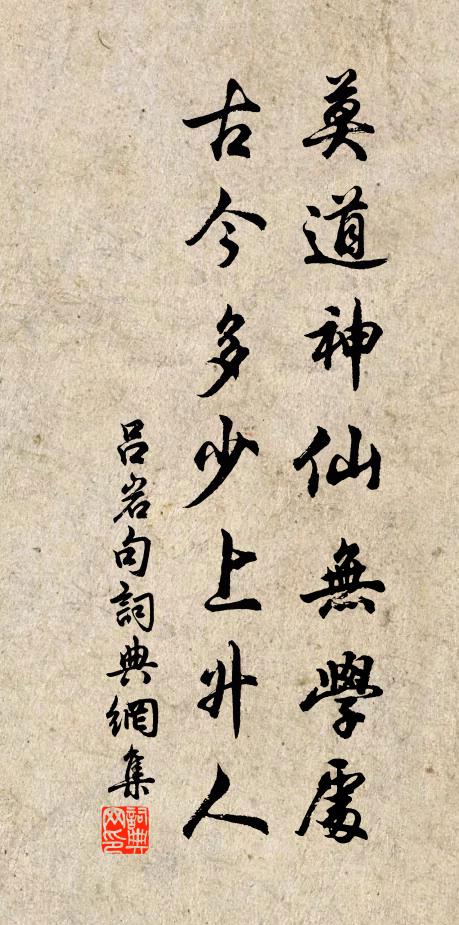 莫道神仙無學處
古今多少上升人
呂岩句詞典網集
詞典网印